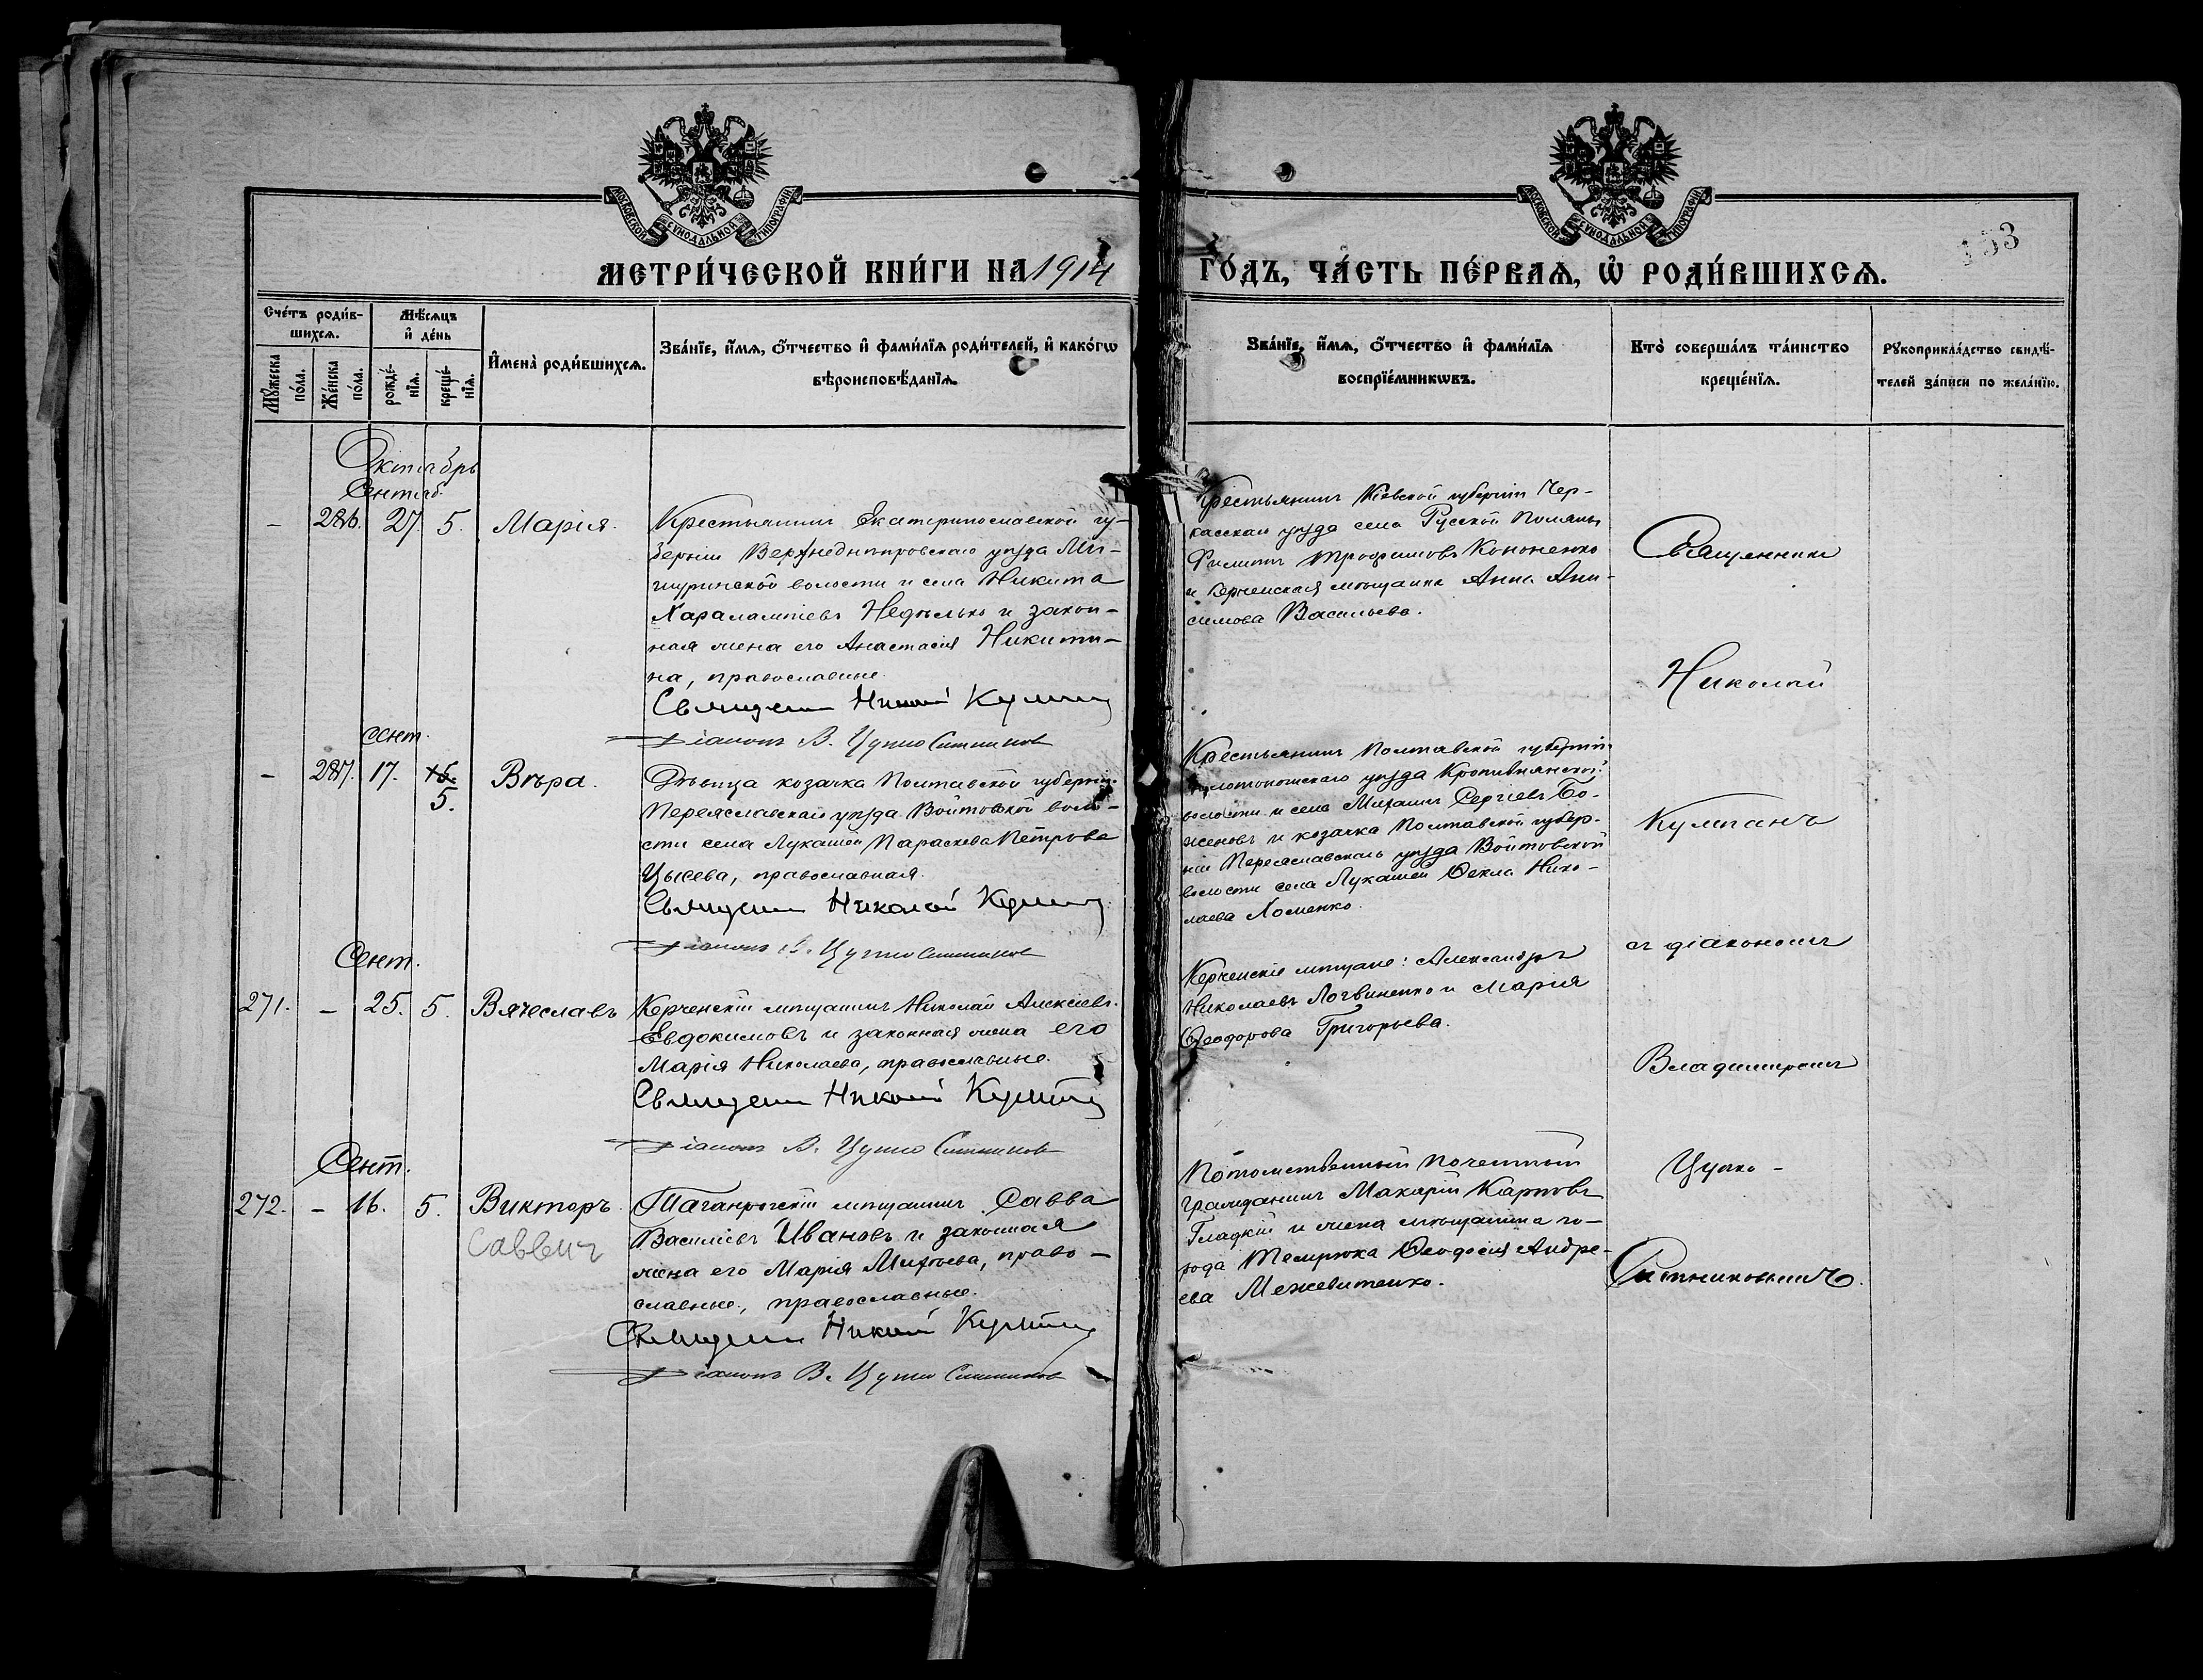 МОСКОВСКОЙ СѴНОДАЛЬНОЙ ТИПОГРАФІИ
МОСКОВСКОЙ СѴНОДАЛЬНОЙ ТИПОГРАФІИ
153
МЕТРИ́ЧЕСКОЙ КНИ́ГИ НА 1914
ГО́ДЪ, ЧА́СТЬ ПЕ́РВАѦ, Ѡ҆ РОДИ́ВШИХСѦ.
Сче́тъ роди́в-
шихсѧ.
Мѣ́сѧцъ
и҆ де́нь
Мꙋ́жеска
по́ла.
Же́нска
по́ла.
рожде́-
нїѧ.
креще́-
нїѧ.
И҆мена̀ роди́вшихсѧ.
Зва́нїе, и҆́мѧ, ѻ҆́тчество и҆ фами́лїѧ роди́телей, и҆ како́гѡ
вѣроисповѣ́данїѧ.
Зва́нїе, и҆́мѧ, ѻ҆́тчество и҆ фами́лїѧ
воспрїе́мникѡвъ.
Кто̀ соверша́лъ та́инство
креще́нїѧ.
Рꙋкоприкла́дство свидѣ́-
телей за́писи по жела́нїю.
Октябрь
Сентяб.
– 286. 27. 5. Марія.
Крестьянинъ Екатеринославской гу-
берніи Верхнеднѣпровскаго уѣзда Ми-
шуринской волости и села Никита
Харалампіевъ Недѣлько и закон-
ная жена его Анастасія Никити-
на, православные.
Священникъ Николай Кумпанъ
Діаконъ В. Цупко Ситниковъ
Крестьянинъ Кіевской губерніи Чер-
касскаго уѣзда села Русской Поляны
Филиппъ Трофимовъ Кононенко
и Керченская мѣщанка Анна Ани-
симова Васильева.
сент.
– 287. 17. 15.
5.
Вѣра.
Дѣвица козачка Полтавской губерніи
Переяславскаго уѣзда Войтовской воло-
сти села Лукашей Параскева Петрова
Цысева, православная.
Священникъ Николай Кумпанъ
Діаконъ В. Цупко Ситниковъ
Крестьянинъ Полтавской губерніи
Золотоношскаго уѣзда Кропивнянской
волости и села Михаилъ Сергіевъ Бо-
женовъ и козачка Полтавской губер-
ніи Переяславскаго уѣзда Войтовской
волости села Лукашей Ѳекла Нико-
лаева Хоменко.
Сент.
271. – 25. 5. Вячеславъ
Керченскій мѣщанинъ Николай Алексіевъ
Евдокимовъ и законная жена его
Марія Николаева, православные.
Священникъ Николай Кумпанъ
Діаконъ В. Цупко Ситниковъ
Керченскіе мѣщане: Александръ
Николаевъ Логвиненко и Марія
Ѳеодорова Григорьева.
Сент.
272. – 16. 5. Викторъ.
Саввич
Таганрогскій мѣщанинъ Савва
Василіевъ Ивановъ и законная
жена его Марія Михеева, право-
славные, православные.
Священникъ Николай Кумпанъ
Діаконъ В. Цупко Ситниковъ
Потомственный почетный
гражданинъ Макарій Карповъ
Гладкій и жена мѣщанина го-
рода Темрюка Ѳеодосія Андре-
ева Межевитенко.
Священникъ
Николай
Кумпанъ
съ діакономъ
Владимиромъ
Цупко-
Ситниковымъ.